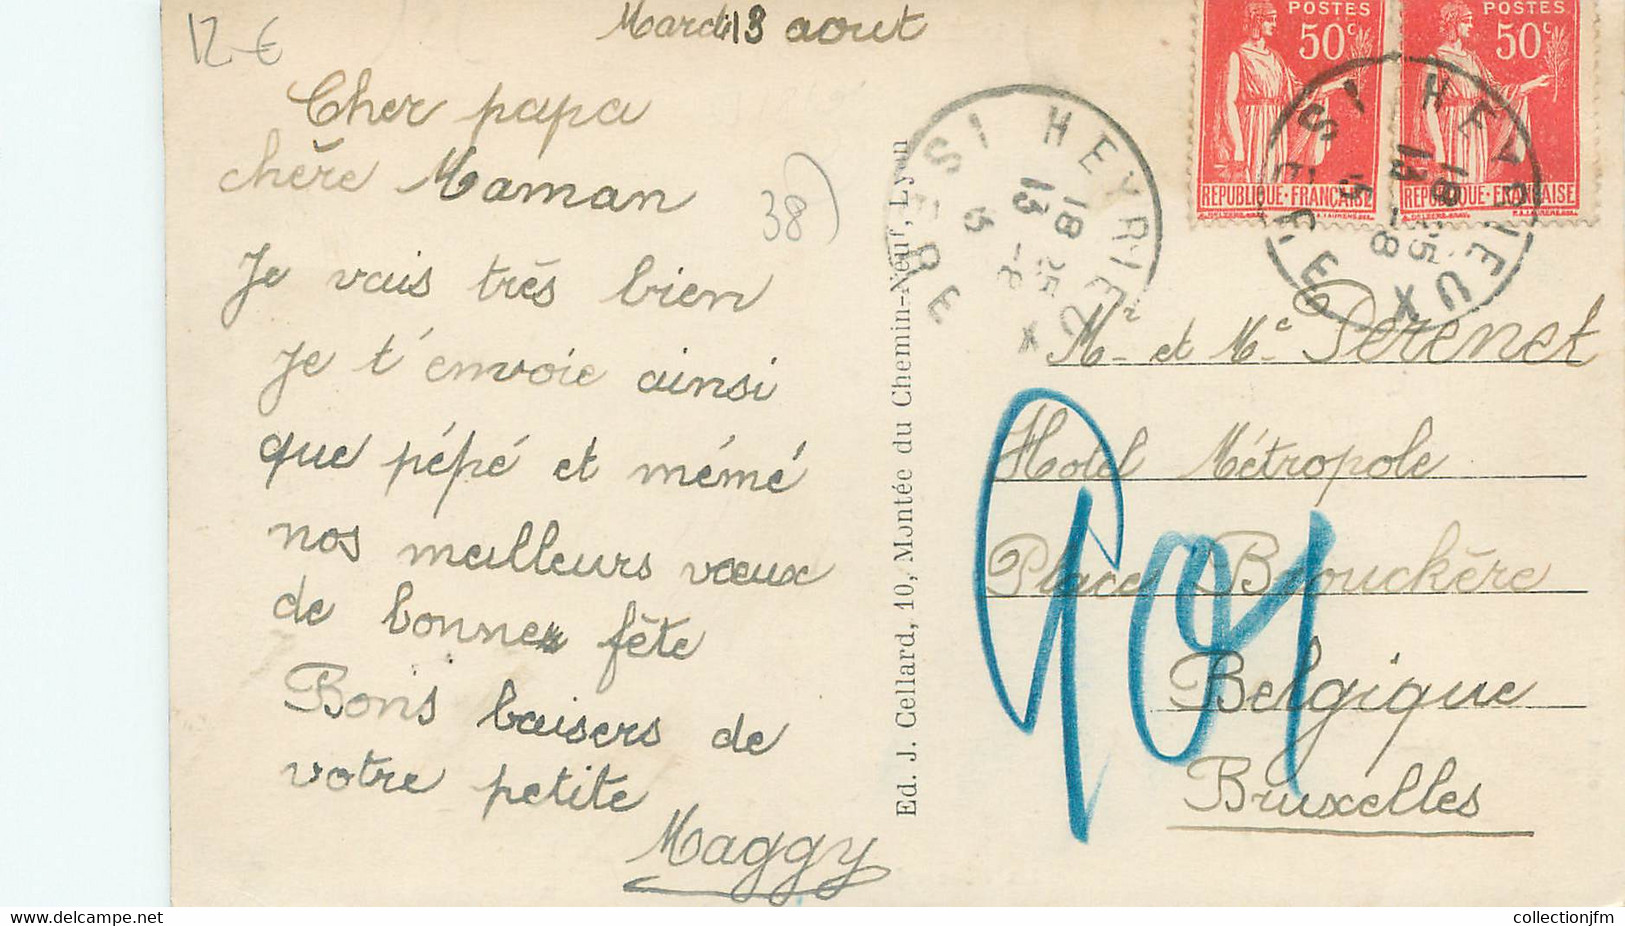 12 €
Mardi 13 aout
Cher papa
chère Maman
Je vais très bien
Je t'envoie ainsi
que pépé et mémé
nos meilleurs vœux
de bonne fête
Bons baisers de
votre petite
Maggy
38
Ed. J. Cellard, 10, Montée du Chemin-Neuf, Lyon
POSTES
50c
REPUBLIQUE·FRANÇAISE
POSTES
50c
REPUBLIQUE·FRANÇAISE
HEYRIEUX
ISERE
18 25
13 -8
HEYRIEUX
ISERE
18 25
13 -8
Mr et Me Perenet
Hotel Métropole
Place Brouckère
Belgique
Bruxelles
901
collectionjfm